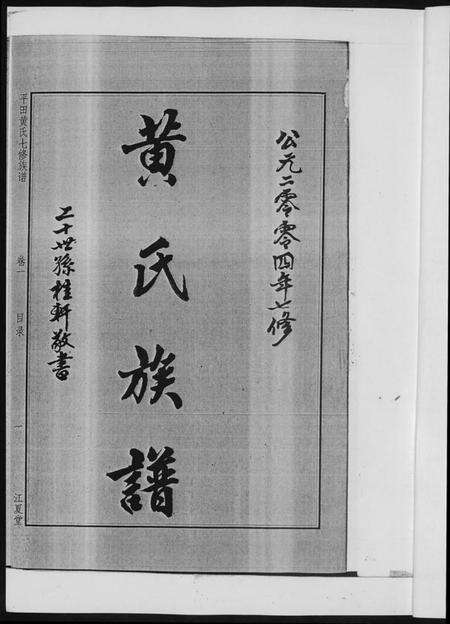 公元二零零四年七修
黄氏族譜
二十世孫桂軒敬書
平田黄氏七修族谱
卷一
目录
一
江夏堂